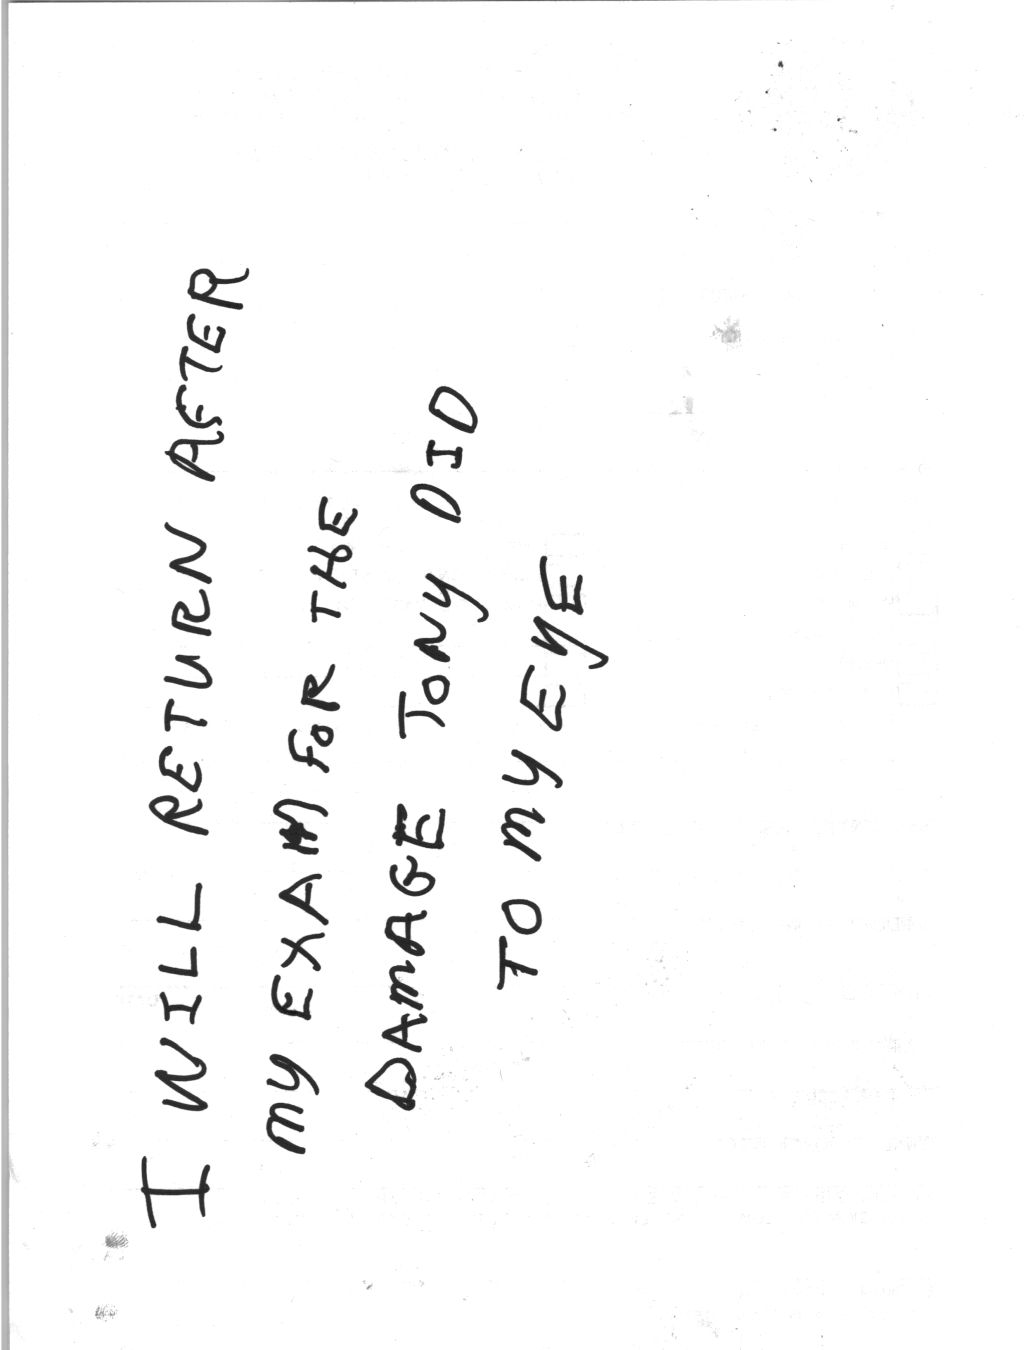 I WILL RETURN AFTER
MY EXAM FOR THE
DAMAGE TONY DID
TO MY EYE